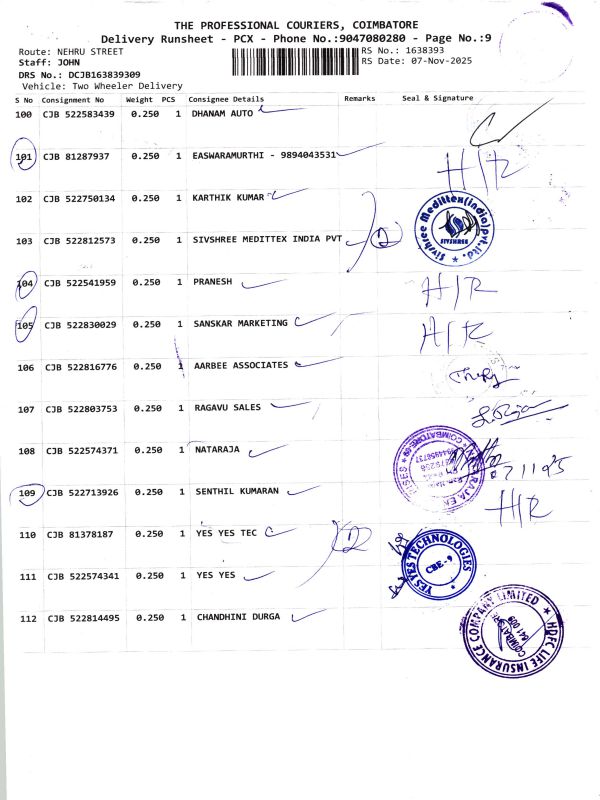 THE PROFESSIONAL COURIERS, COIMBATORE
Delivery Runsheet - PCX - Phone No.:9047080280 - Page No.:9
Route: NEHRU STREET
RS No.: 1638393
Staff: JOHN
RS Date: 07-Nov-2025
DRS No.: DCJB163839309
Vehicle: Two Wheeler Delivery
S No Consignment No Weight PCS Consignee Details Remarks Seal & Signature
100 CJB 522583439 0.250 1 DHANAM AUTO
101 CJB 81287937 0.250 1 EASWARAMURTHI - 9894043531
H/R
102 CJB 522750134 0.250 1 KARTHIK KUMAR
Sivshree Medittex(india)Pvt.ltd.
SIVSHREE
103 CJB 522812573 0.250 1 SIVSHREE MEDITTEX INDIA PVT
2
104 CJB 522541959 0.250 1 PRANESH
H/R
105 CJB 522830029 0.250 1 SANSKAR MARKETING
H/R
106 CJB 522816776 0.250 1 AARBEE ASSOCIATES
107 CJB 522803753 0.250 1 RAGAVU SALES
108 CJB 522574371 0.250 1 NATARAJA
109 CJB 522713926 0.250 1 SENTHIL KUMARAN
H/R
110 CJB 81378187 0.250 1 YES YES TEC
2
YES YES TECHNOLOGIES
CBE - 9
111 CJB 522574341 0.250 1 YES YES
112 CJB 522814495 0.250 1 CHANDHINI DURGA
HDFC LIFE INSURANCE COMPANY LIMITED
COIMBATORE
641 009